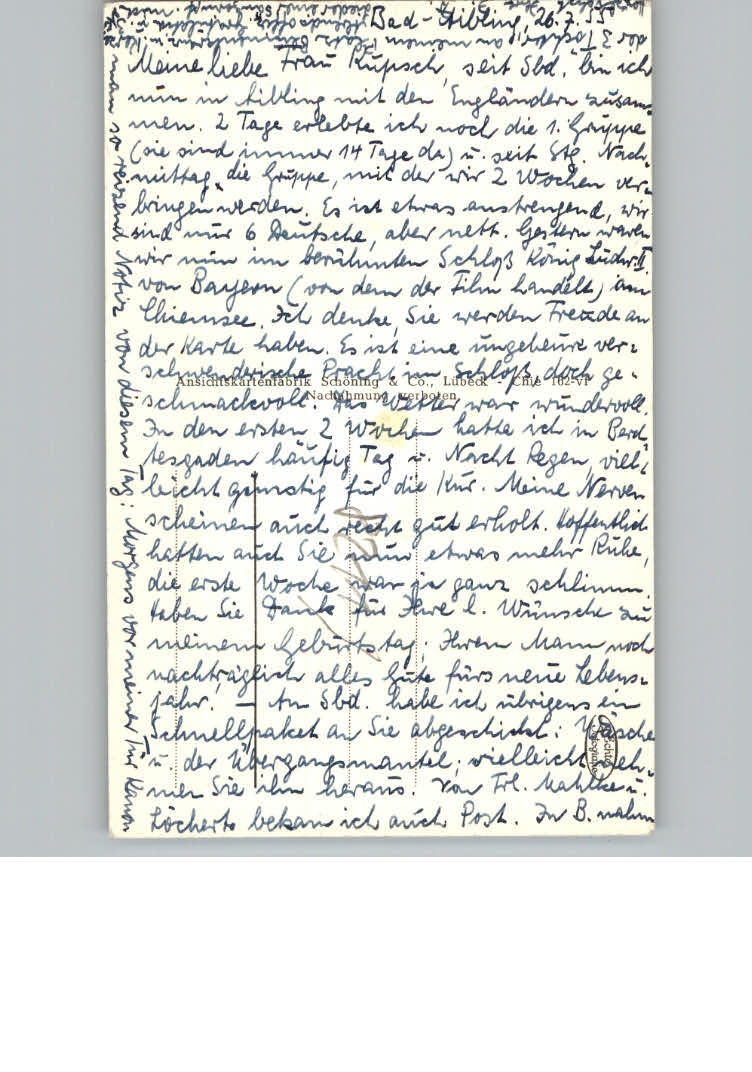 Bad-Aibling, 26.7.55
Meine liebe Frau Kupsch, seit Sbd. bin ich
nun in Aibling mit den Engländern zusam-
men. 2 Tage erlebte ich noch die 1. Gruppe
(sie sind immer 14 Tage da) u. seit Stg. Nach-
mittag die Gruppe, mit der wir 2 Wochen ver-
bringen werden. Es ist etwas anstrengend, wir
sind nur 6 Deutsche, aber nett. Gestern waren
wir nun im berühmten Schloß König Ludw. II.
von Bayern (von dem der Film handelt) am
Chiemsee. Ich denke, Sie werden Freude an
der Karte haben. Es ist eine ungeheure ver-
schwenderische Pracht im Schloß, doch ge-
Ansichtskartenfabrik Schöning & Co., Lübeck - Chie 162-VI
Nachahmung verboten
schmackvoll. Das Wetter war wundervoll.
In den ersten 2 Wochen hatte ich in Berch
tesgaden häufig Tag u. Nacht Regen, viel-
leicht günstig für die Kur. Meine Nerven
scheinen auch recht gut erholt. Hoffentlich
hatten auch Sie nun etwas mehr Ruhe,
die erste Woche war ja ganz schlimm.
Haben Sie Dank für Ihre l. Wünsche zu
meinem Geburtstag. Ihrem Mann noch
nachträglich alles Gute fürs neue Lebens-
jahr! — Am Sbd. habe ich übrigens ein
Schnellpaket an Sie abgeschickt: Wäsche
u. der Übergangsmantel; vielleicht neh-
men Sie ihn heraus. Von Frl. Mahlke u.
Löcherts bekam ich auch Post. In B. nahm
man so reizend Notiz von diesem Tag: Morgens vor meiner Tür Kanon
Echte
Fotografie